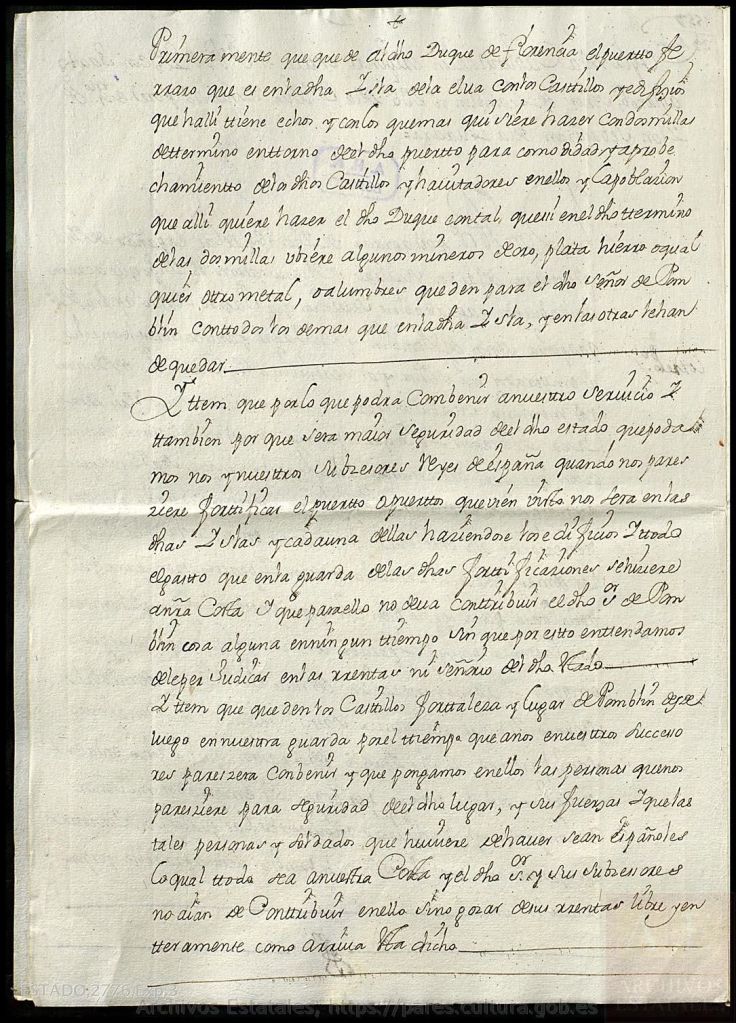 Primera mente que quede al dho Duque de florencia el puertto fe
rraro que es en la dha Ysla dela elua con los Casttillos y edifizios
que halli ttiene echos y con los que mas quisiere hazer con dos millas
de ttermino enttorno de el dho puertto para como didad y aprobe
chamientto de los dhos Casttillos y hauitadores en ellos y la poblazion
que alli quiere hazer el dho Duque con tal, que si en el dho ttermino
de las dos millas ubiere algunos mineros de oro, plata hierro o qual
quier ottro metal, o alumbres queden para el dho señor de Pom
blin con ttodos los demas que en la dha Ysla, y en las otras le han
de quedar
Yttem que por lo que podra Combenir a nuestro Seruicio Y
ttambien por que sera maior seguridad de el dho estado que poda
mos nos y nuesttros subzesores Reyes de españa quando nos pares
ziere forttificar el puertto o puerttos que vien visto nos sera en las
dhas Yslas y cada una dellas haziendose los edificios Y ttodo
el gastto que en la guarda de las dhas forttificaziones se hiziere
a nra Costa Y que para ello no deua conttribuir el dho Sr de Pom
blin cosa alguna en ningun ttiempo sin que por estto enttendamos
de le perjudicar en las rrentas ni señorio de el dho estado
Yttem que queden los Casttillos forttaleza y lugar de Pomblin desde
luego en nuestra guarda por el ttiempo que a nos e nuesttros subceso
res pareszera conbenir y que pongamos en ellos las personas que nos
paresziere para seguridad de el dho lugar, y sus fuerzas Y que las
tales personas y soldados que huuiere de hauer sean españoles
lo qual ttodo sea a nuestra Costa y el dho Sr y sus subzesores
no aian de Conttribuir en ello sino gozar de sus rrentas libre y en
tteramente como arriua esta dicho
ESTADO,2776,Exp.3
ARCHIVOS ESTATALES
Archivos Estatales, https://pares.cultura.gob.es